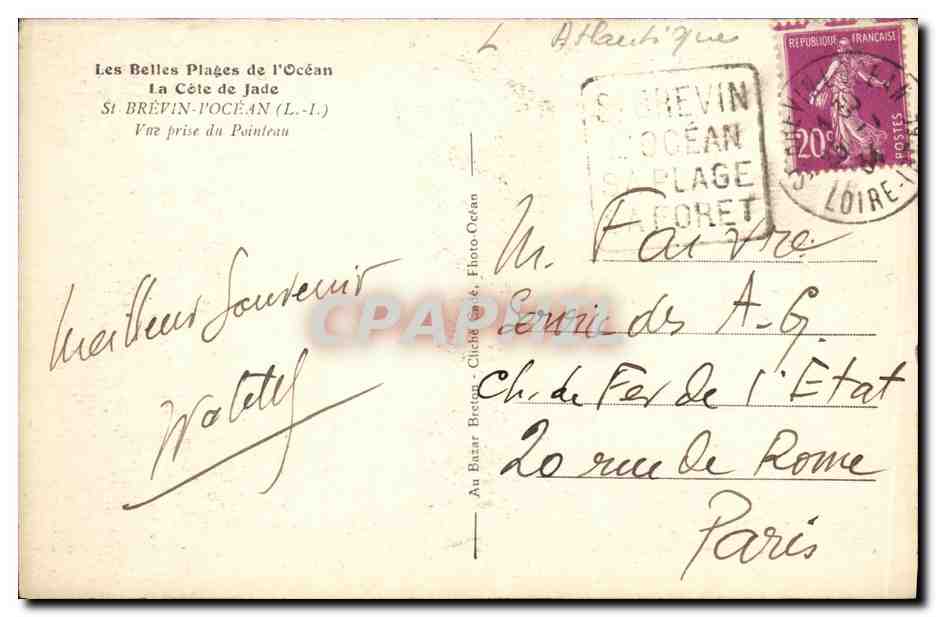 L Atlantique
Les Belles Plages de l'Océan
La Côte de Jade
St-BRÉVIN-l'OCÉAN (L.-I.)
Vue prise du Pointeau
ST BREVIN
L'OCÉAN
SA PLAGE
SA FORET
REPUBLIQUE FRANÇAISE
20c
POSTES
LOIRE-INFRE
Meilleur Souvenir
M. Faivre
Service des A-G
Ch. de Fer de l'Etat
20 rue de Rome
Paris
Au Bazar Breton - Cliché Gadé, Photo-Océan
CPAPHIL